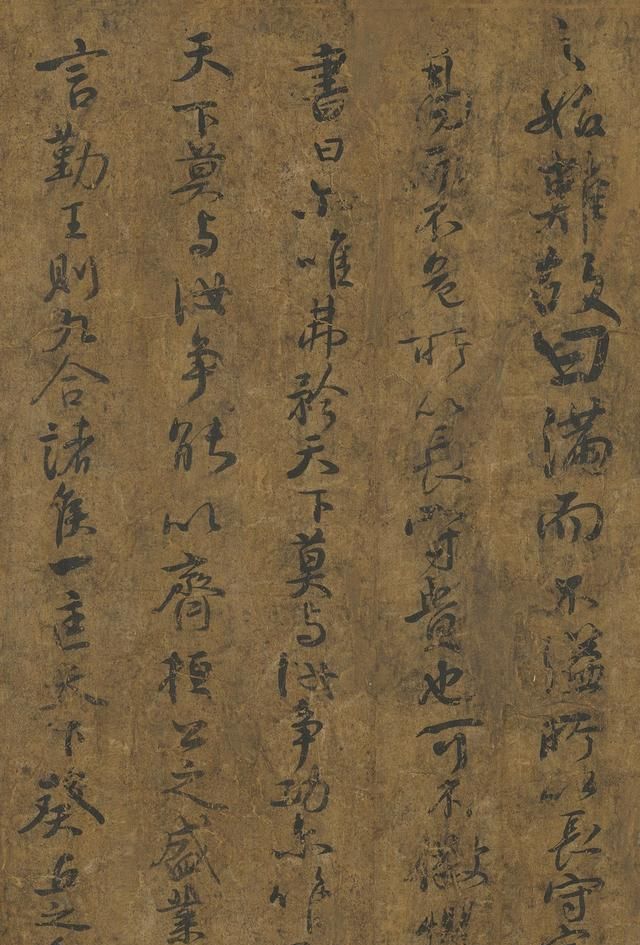 之始難故曰滿而不溢所以長守
高而不危所以長守貴也可不儆懼
書曰尓唯弗矜天下莫与汝争功尓唯
天下莫与汝争能以齊桓公之盛業
言勤王則九合諸侯一匡天下葵丘之